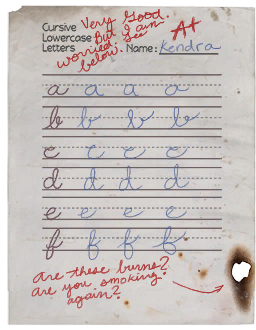 Cursive
Lowercase
Letters
Very Good.
But I am
worried. See
below.
A+
Name: Kendra
a a a a
b b b b
c c c c
d d d d
e e e e
f f f f
are these burns?
are you smoking
again?